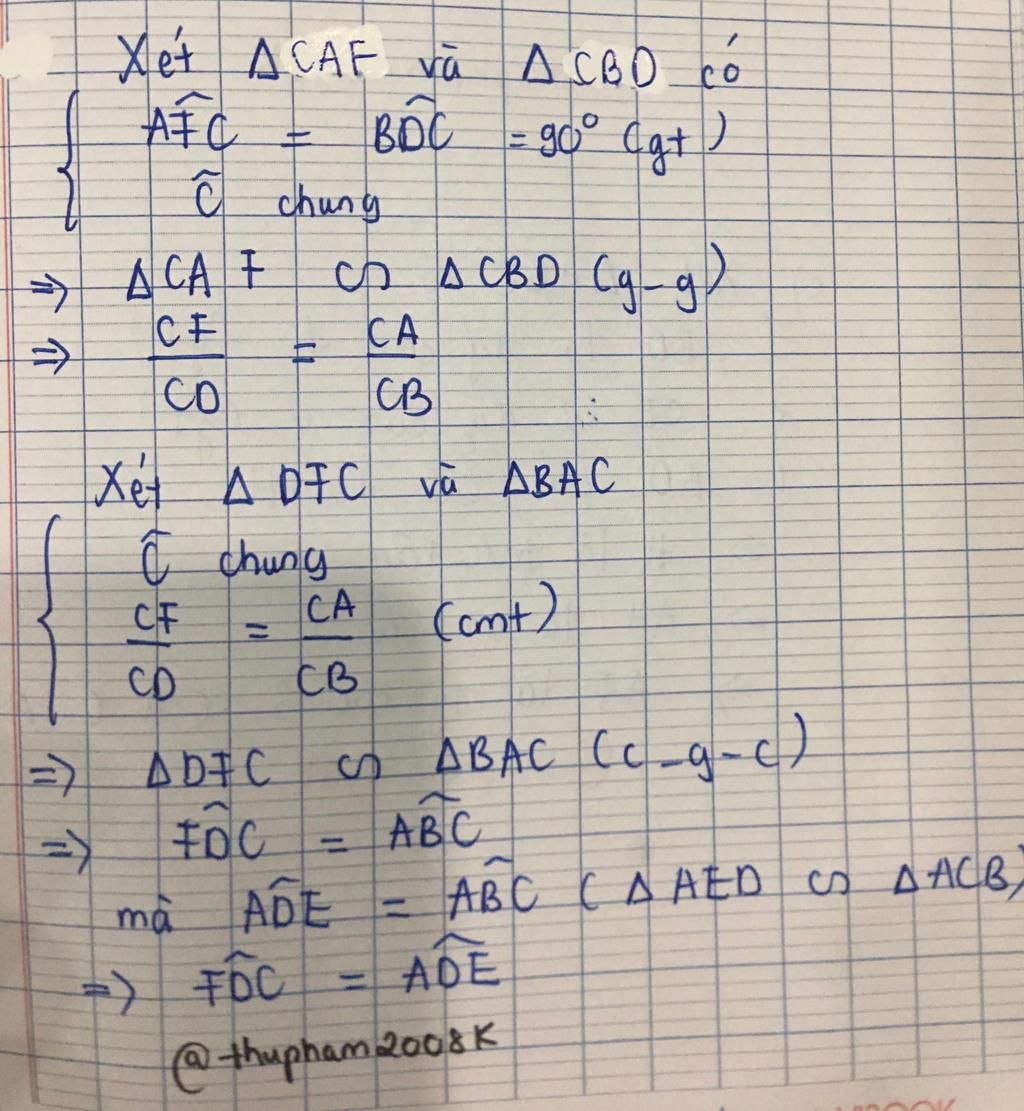 Xét ΔCAF và ΔCBD có
AF̂C = BD̂C = 90° (gt)
Ĉ chung
=> ΔCAF ∽ ΔCBD (g-g)
=> CF/CD = CA/CB
Xét ΔDFC và ΔBAC
Ĉ chung
CF/CD = CA/CB (cmt)
=> ΔDFC ∽ ΔBAC (c-g-c)
=> FD̂C = AB̂C
mà AD̂E = AB̂C (ΔAED ∽ ΔACB)
=> FD̂C = AD̂E
@thupham2008K